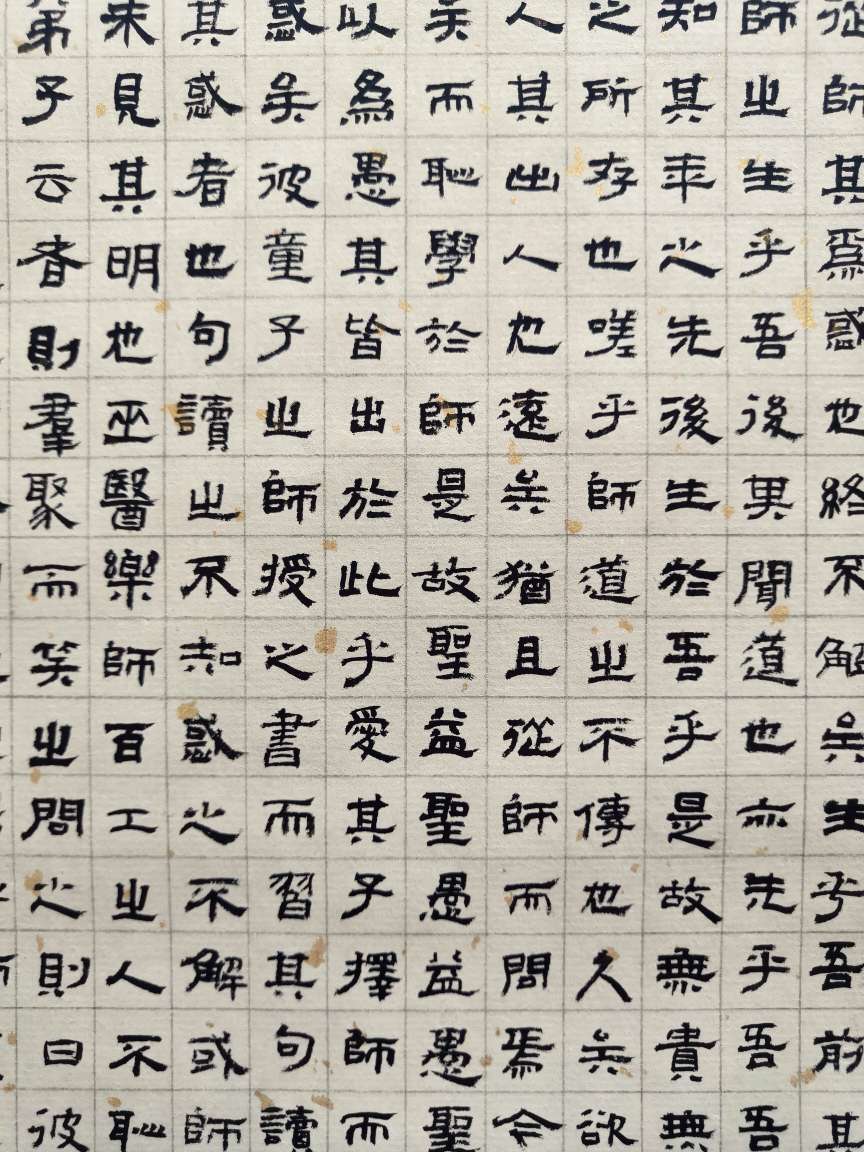 從師其爲惑也終不解矣生乎吾前其
師之生乎吾後其聞道也亦先乎吾吾
知其年之先後生於吾乎是故無貴無
之所存也嗟乎師道之不傳也久矣欲
人其出人也遠矣猶且從師而問焉今
矣而恥學於師是故聖益聖愚益愚聖
以爲愚其皆出於此乎愛其子擇師而
惑矣彼童子之師授之書而習其句讀
其惑者也句讀之不知惑之不解或師
未見其明也巫醫樂師百工之人不恥
弟子云者則羣聚而笑之問之則曰彼